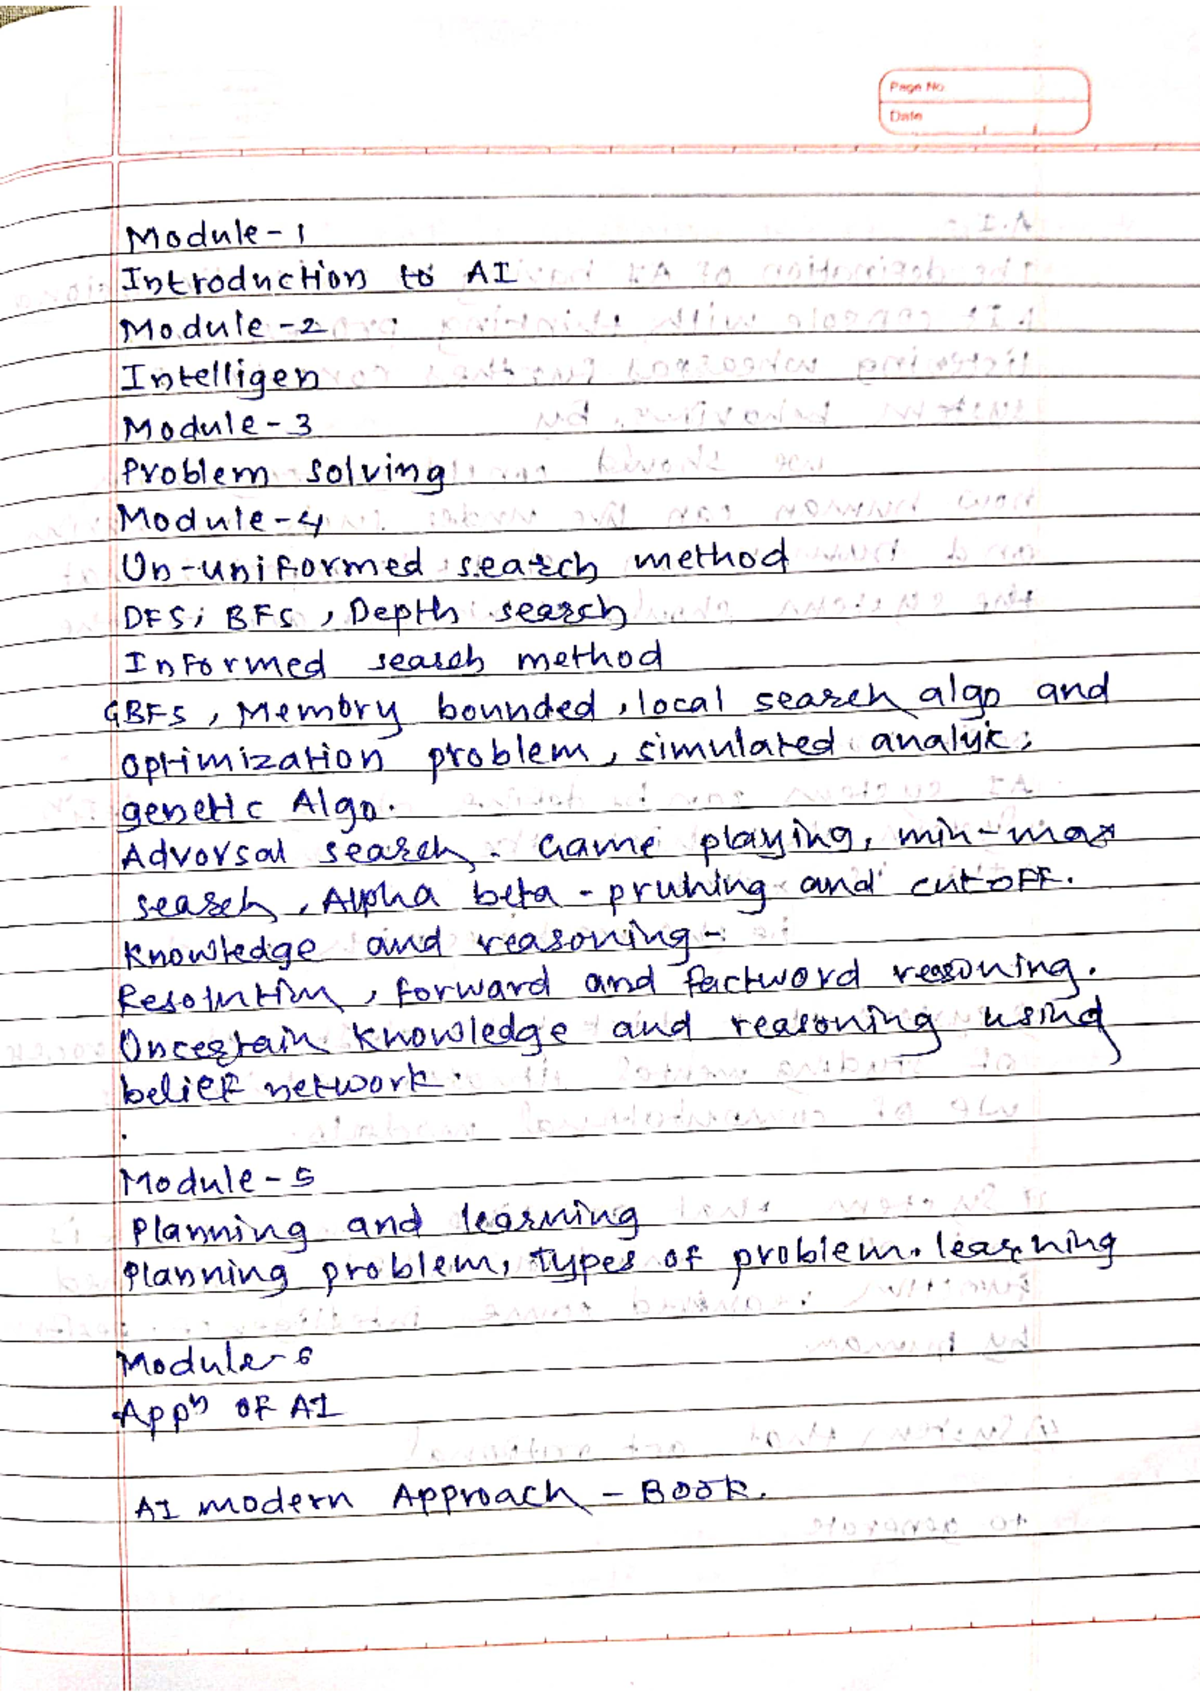 Page No
Date
Module-1
Introduction to AI
Module-2
Intelligen
Module-3
Problem solving
Module-4
Un-uniformed search method
DFS, BFS, Depth search
Informed search method
GBFS, Memory bounded, local search algo and
optimization problem, simulated analyk,
genetic Algo.
Advorsal search. Game playing, min-max
search, Alpha beta - pruning and cutoff.
Knowledge and reasoning -
Resolution, forward and factword reasoning.
Uncertain knowledge and reasoning using
belief network.
Module-5
Planning and learning
Planning problem, types of problem. learning
Module-6
Appn of AI
AI modern Approach - Book.